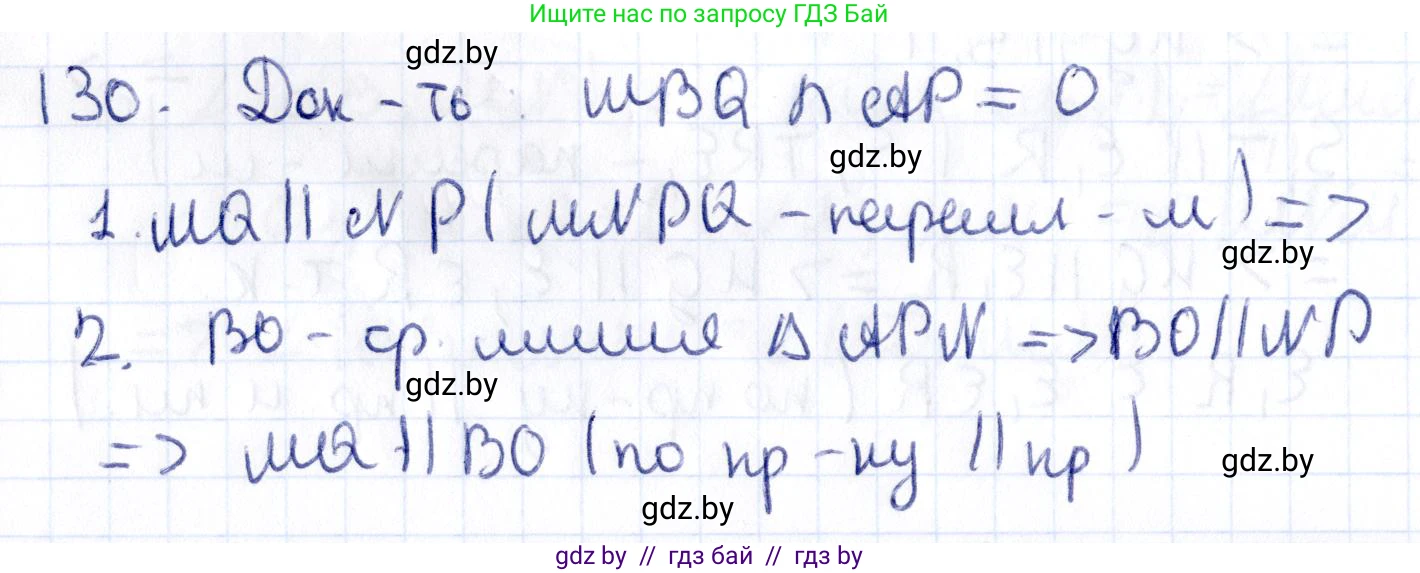 Ищите нас по запросу ГДЗ Бай
gdz.by
130. Док-ть: MBQ ∩ AP = O
gdz.by
1. MQ || NP (MNPQ - паралл-м) =>
gdz.by
2. BO - ср. линия Δ APN => BO || NP
gdz.by
=> MQ || BO (по пр-ку || пр)
gdz.by
gdz.by
gdz by // гдз бай // гдз by